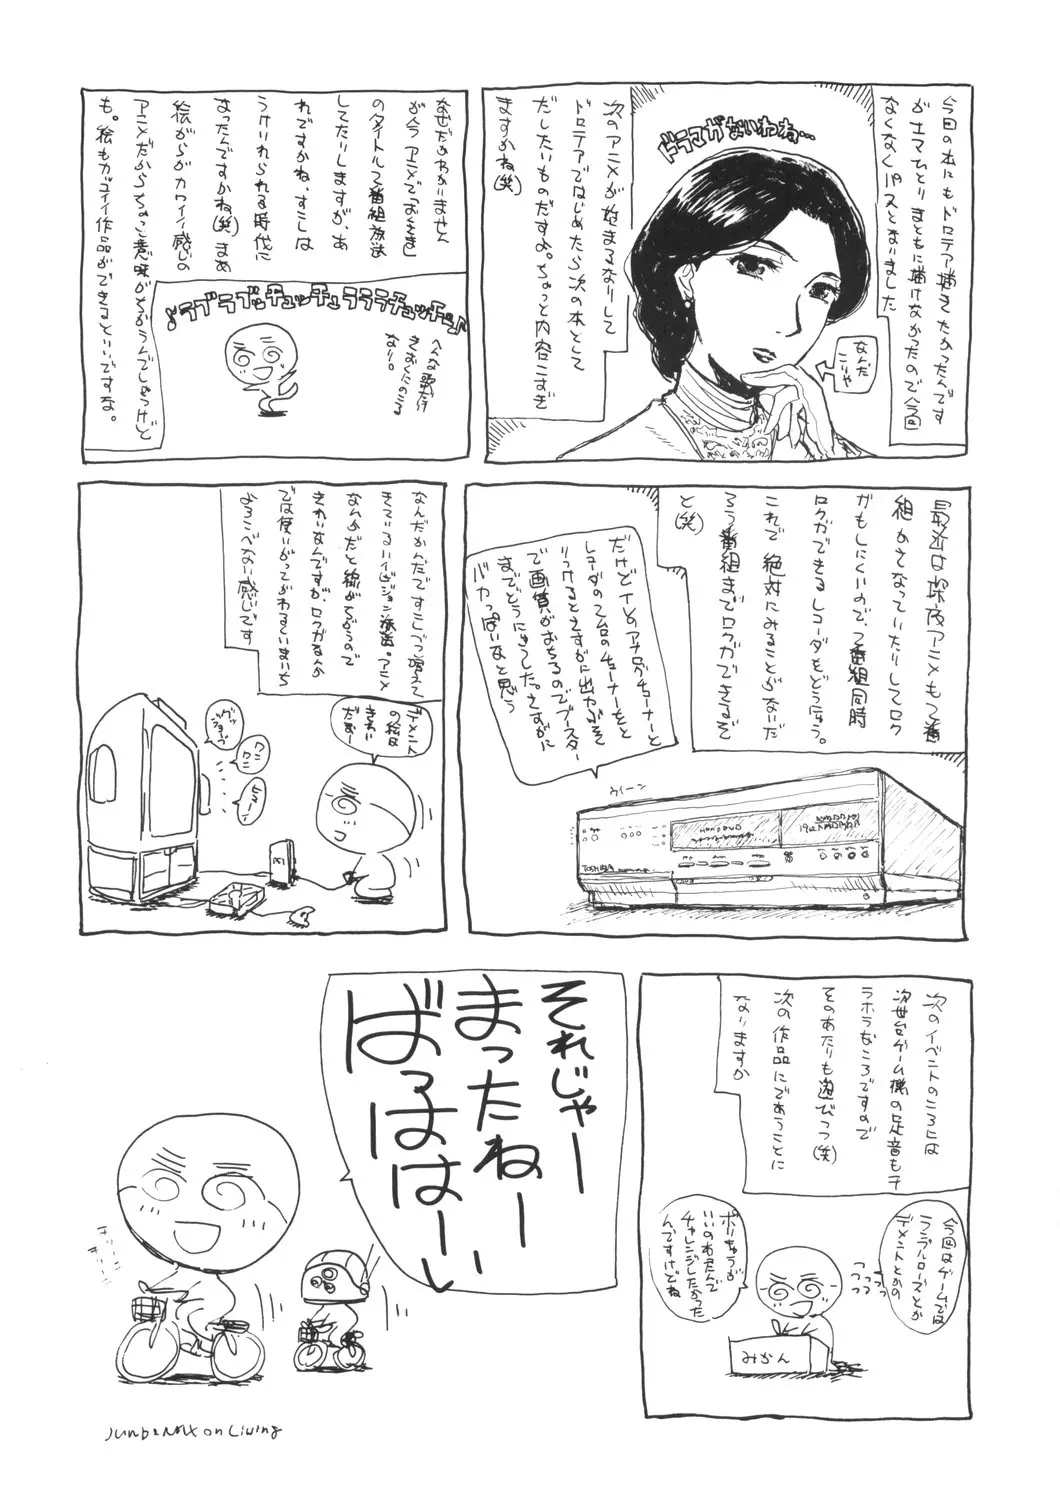 今回の本にもドロテア描きたかったんです
が土マひとりまともに描けなかったので今回
なくなくパスとなりました
ドラマがないわね…
なんだ
こりゃ
次のアニメが始まるなりして
ドロテアではじめたら次の本として
だしたいものだすよ。ちょっと内容こすぎ
ますかね(笑)
なぜだかわかりません
が今アニメで
のタイトルで番組放送
してたりしますが、あ
れですかね、すこしは
うけいれられる時代に
なったんですかね(笑)まあ
絵がらがカワイイ感じの
アニメだからちょっと意味がちがうんでしょうけど
も。絵もカッコイイ作品ができるといいですな。
♪ラブラブッチュッチュラララチュッチュ♪
へんな歌だけ
きおくにのこる
なり。
最近は深夜アニメも2番
組かさなっていたりしてロク
ガもしにくいので、2番組同時
ロクガできるレコーダをどう
これで絶対にみることがないだ
ろう番組までロクガできるぞ
と(笑)
だけどイとのアナログチューナーと
レコーダの2ム台のチューナーをと
りつけるとさすがに出力がぶそく
で画質がおちるのでブースター
までどうにゅうした。さすがに
バカっぱいなと思う
ウィーン
TOSHIBA
なんだかんだですこしづつ増えて
きているハイビジョン放送。アニメ
なんかだと線がちがうので
きれいなんですが、ロクガなんか
では使いがってがわるくいまいち
よろこべない感じです
デメントの
絵は
きれい
だなー
グッ
ジョブ
ワン
ワン
ヒューン
次のイベントのころには
次世台ゲーム機の足音もチ
ラホラなころですので
そのあたりも遊びつつ(笑)
次の作品にであうことに
なりますか
今回はゲームでは
ランブルローズとか
デメントとかの
つつつ
つつつ
ポリキャラが
いいのあたんで
チャレンジしたかった
んですけどね
みかん
それじゃー
まったねーい
ばっははーい
JunbeMAX on Living